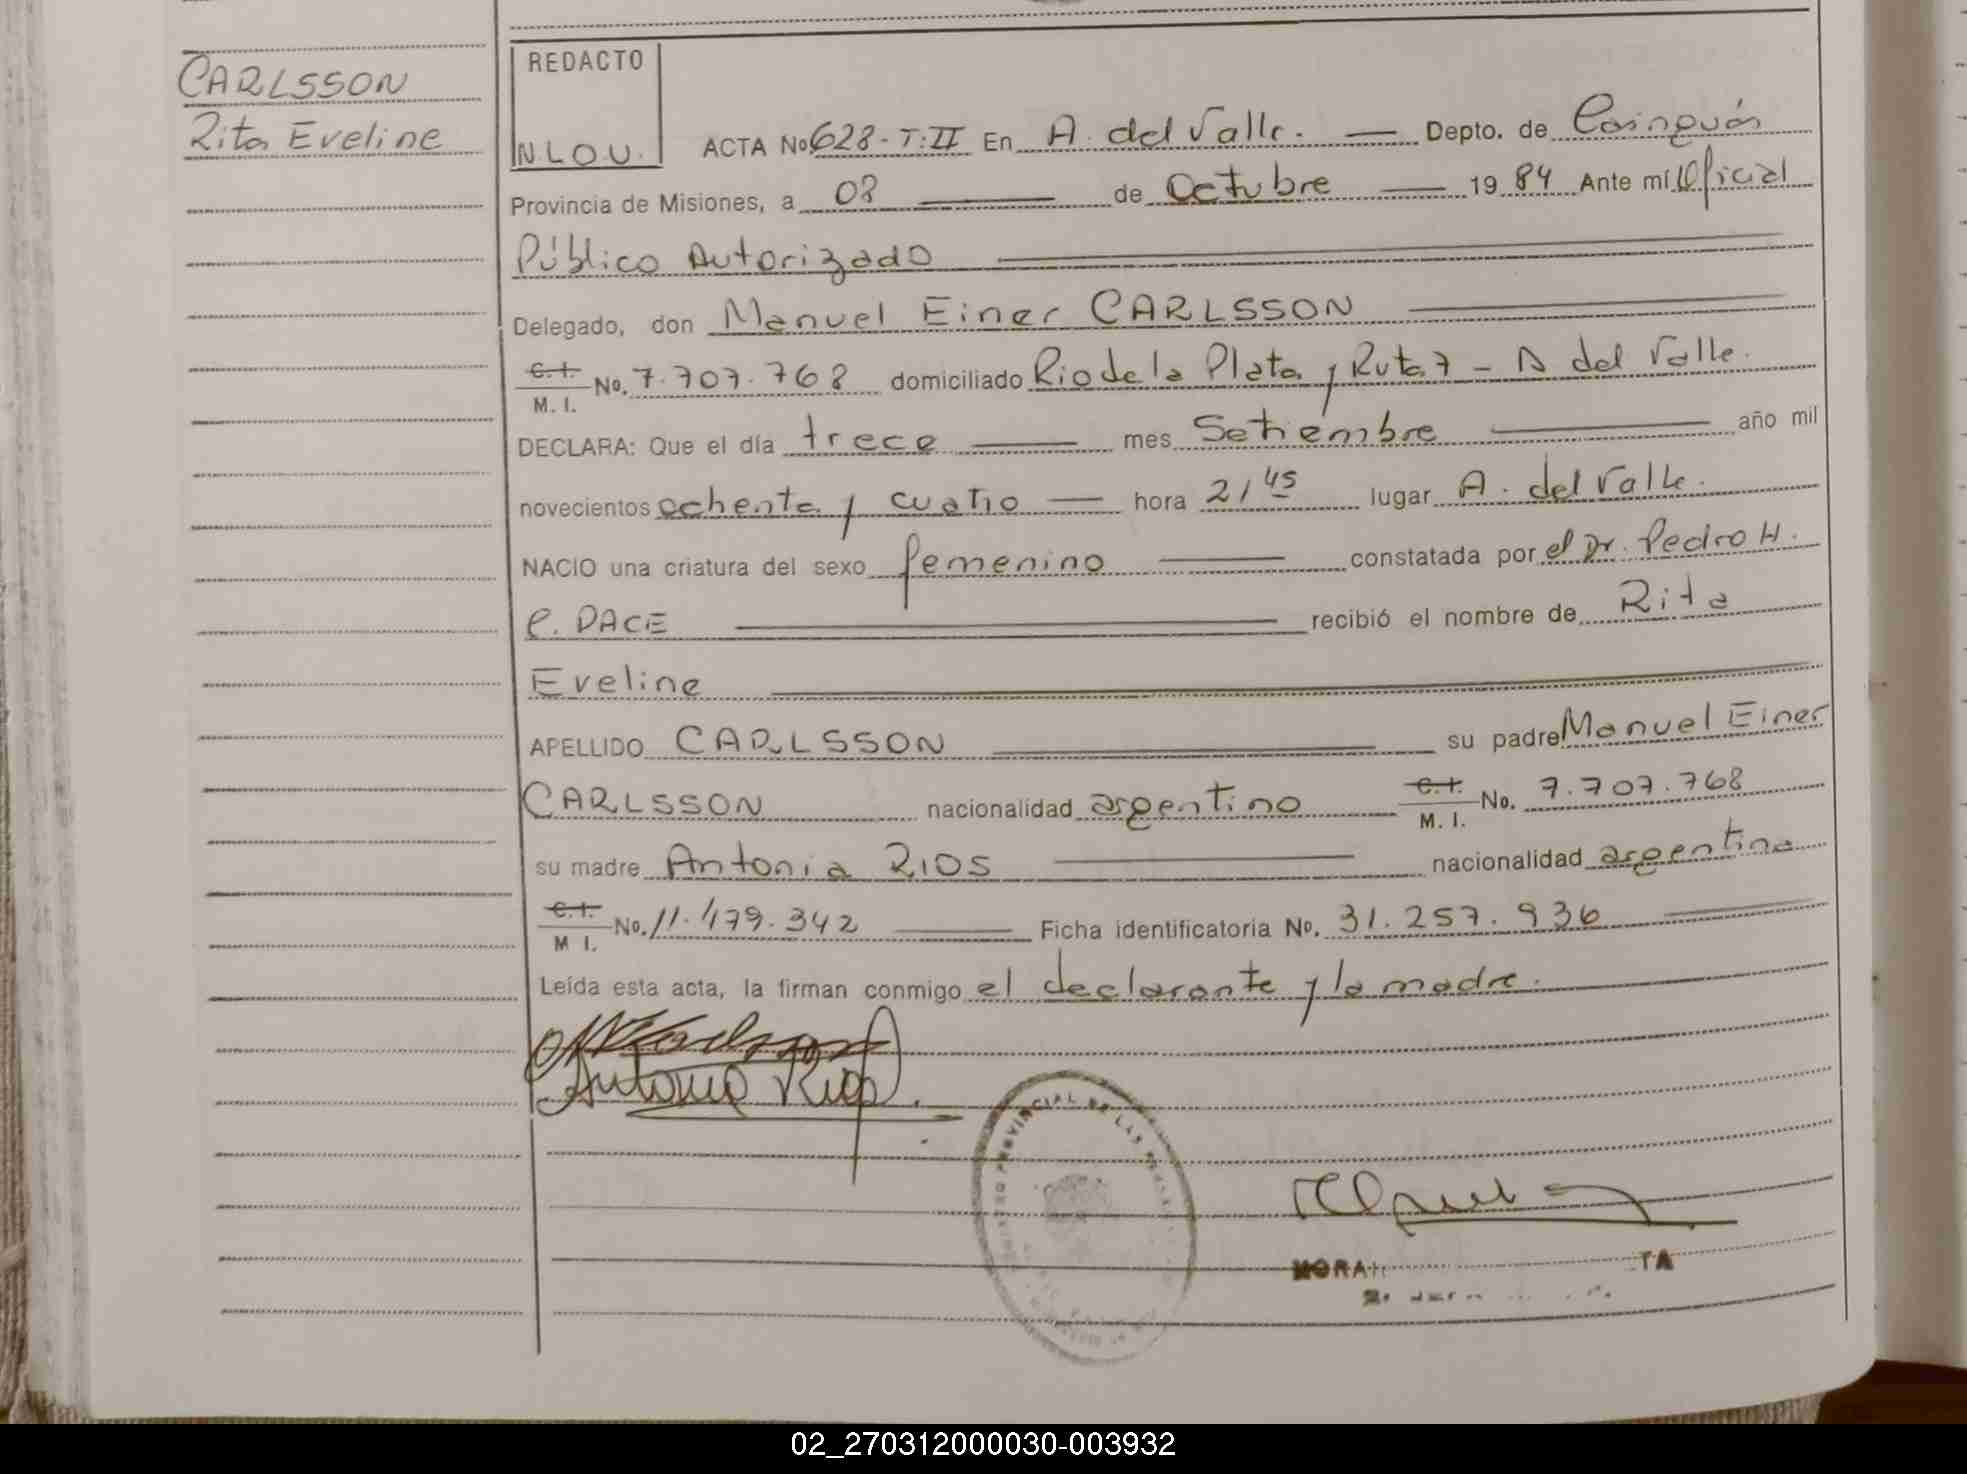 CARLSSON
Rita Eveline
REDACTO
N.L.O.U.
ACTA No 628-T:II En A. del Valle. Depto. de Cainguás
Provincia de Misiones, a 08 de Octubre 19 84 Ante mí Oficial
Público Autorizado
Delegado, don Manuel Einer CARLSSON
C.I. M. I. No. 7.707.768 domiciliado Rio de la Plata y Ruta 7 - A del Valle.
DECLARA: Que el día trece mes Setiembre año mil
novecientos ochenta y cuatro hora 21 45 lugar A. del Valle.
NACIO una criatura del sexo femenino constatada por el Dr. Pedro H.
C. PACE recibió el nombre de Rita
Eveline
APELLIDO CARLSSON su padre Manuel Einer
CARLSSON nacionalidad argentino C.I. M. I. No. 7.707.768
su madre Antonia RIOS nacionalidad argentina
C.I. M I. No. 11.479.342 Ficha identificatoria No. 31.257.936
Leída esta acta, la firman conmigo el declarante y la madre.
Antonia Rios
PROVINCIAL DE LAS
02_270312000030-003932